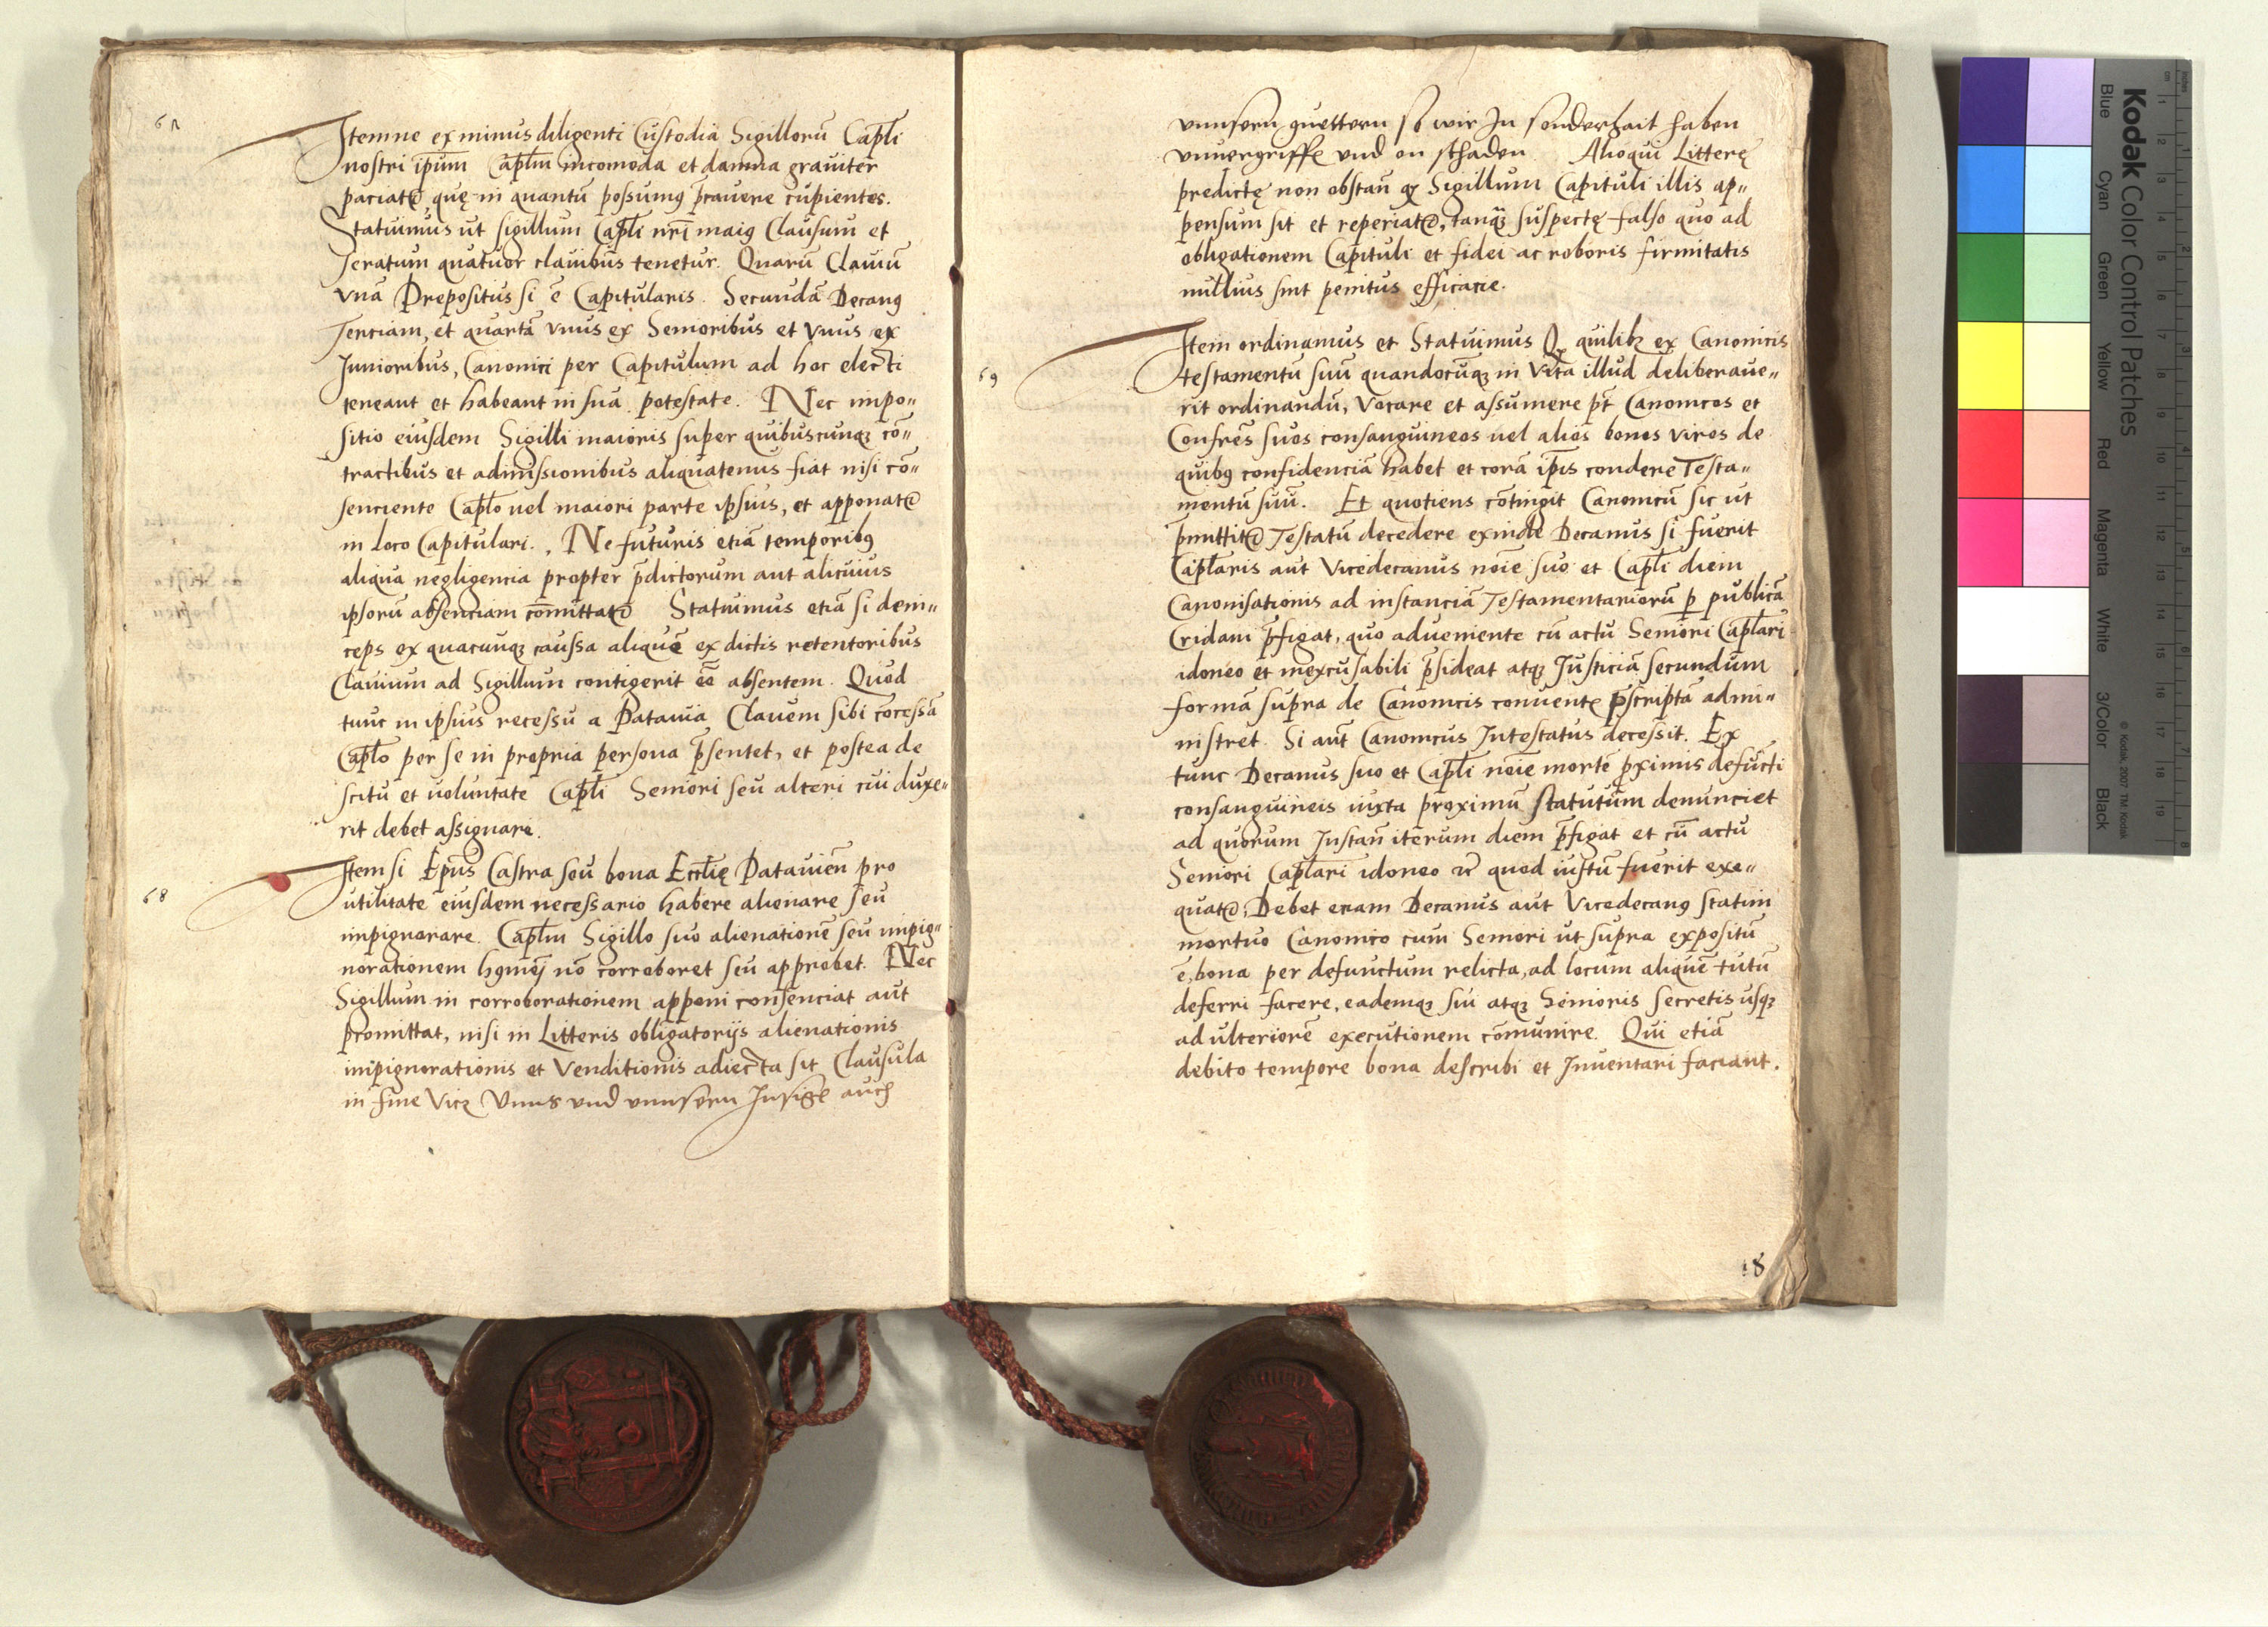 67
Item ne ex minus diligenti Custodiā Sigillorū Capłi
nostri ip̄um Capłm incomoda et damna grauiter
paciatr quę in quantū possumus p̄cauere cupientes.
Statuimus ut sigillum Capłi nr̄i maius Clausum et
Seratum quatuor clauibus tenetur. Quarū Clauiū
vnā Prepositus si ē Capitularis. Secundā Decanus
Terciam, et quartā vnus ex Senioribus et Vnus ex
Junioribus, Canonici per Capitulum ad hoc electi
teneant et habeant in suā potestate. Nec impo„
sitio eiusdem Sigilli maioris super quibuscunqꝫ cō„
tractibus et admissionibus aliquatenus fiat nisi cō„
senciente Capło uel maiori parte ipsius, et apponatr
in loco Capitulari., Ne futuris etiā temporibus
aliqua negligencia propter p̄dictorum aut alicuius
ipsorū absenciam cōmittatr Statuimus etiā si dein„
ceps ex quacunqꝫ caussa aliquē ex dictis retentoribus
Clauium ad Sigillum contigerit eē absentem. Quod
tunc in ipsius recessu a Patauia Clauem sibi cōcessā
Capło per se in propria persona p̄sentet, et postea de
scitu et uoluntate Capłi Seniori seu alteri cui duxe„
rit debet assignari.
68
Item si Ep̄us Castra seu bona Eccłię Patauień pro
utilitate eiusdem necessario habere alienare seu
impignorare. Capłm Sigillo suo alienationē seu impig„
norationem hqmōj nō corroboret seu approbet. Nec
Sigillum in corroborationem apponi consenciat aut
promittat, nisi in Litteris obligatorijs alienationis
inpignorationis et Venditionis adiecta sit Clausula
in fine Vicꝫ Vnns vnd vnnsern Insigl auch
vnnsern guettern so wir In sonderhait haben
vnuergriffn vnd on schaden. Alioqui Litterę
predictę non obstań ꝙ Sigillum Capituli illis ap„
pensum sit et reperiatr, tanqꝫ suspectę falso quo ad
obligationem Capituli et fidei ac roboris firmitatis
nullius sint penitus efficacie.
69
Item ordinamus et Statuimus Ꝙ quilibꝫ ex Canonicis
testamentū suū quandocūqꝫ in Vita illud deliberaue„
rit ordinandū, Vocare et assumere pt̄ Canonicos et
Confrēs suos consanguineos uel alios bonos viros de
quibus confidenciā habet et corā ip̄is condere Testa„
mentū suū. Et quotiens cōtingit Canonicū sic ut
p̄mittitr Testatū decedere exinde Decanus si fuerit
Capłaris aut Vicedecanus noīe suo et Capłi diem
Canonisationis ad instanciā Testamentariorū ꝑ publicā
Cridam p̄figat, quo adueniente cū actu Seniori Capłari
idoneo et inexcusabili p̄sideat atqꝫ Justiciā secundum
formā supra de Canonicis conuentꝭ p̄scriptā admi„
nistret. Si aūt Canonicus Intestatus decessit. Ex
tunc Decanus suo et Capłi noīe mortē ꝓximis defūcti
consanguineis iuxta proximū statutum denunciet
ad quorum Instań iterum diem p̄figat et cū actu
Seniori Capłari idoneo ut quod iustū fuerit exe„
quatr, Debet etiam Decanus aut Vicedecanus statim
mortuo Canonico cum Seniori ut supra expositū
ē, bona per defunctum relicta, ad locum aliquē tutū
deferri facere, eademqꝫ sui atqꝫ Senioris secretis usqꝫ
ad ulteriorē executionem cōmunire. Qui etiā
debito tempore bona describi et Inuentari faciant.
18
Kodak Color Control Patches
Blue Cyan Green Yellow Red Magenta White 3/Color Black
© Kodak, 2007 TM: Kodak